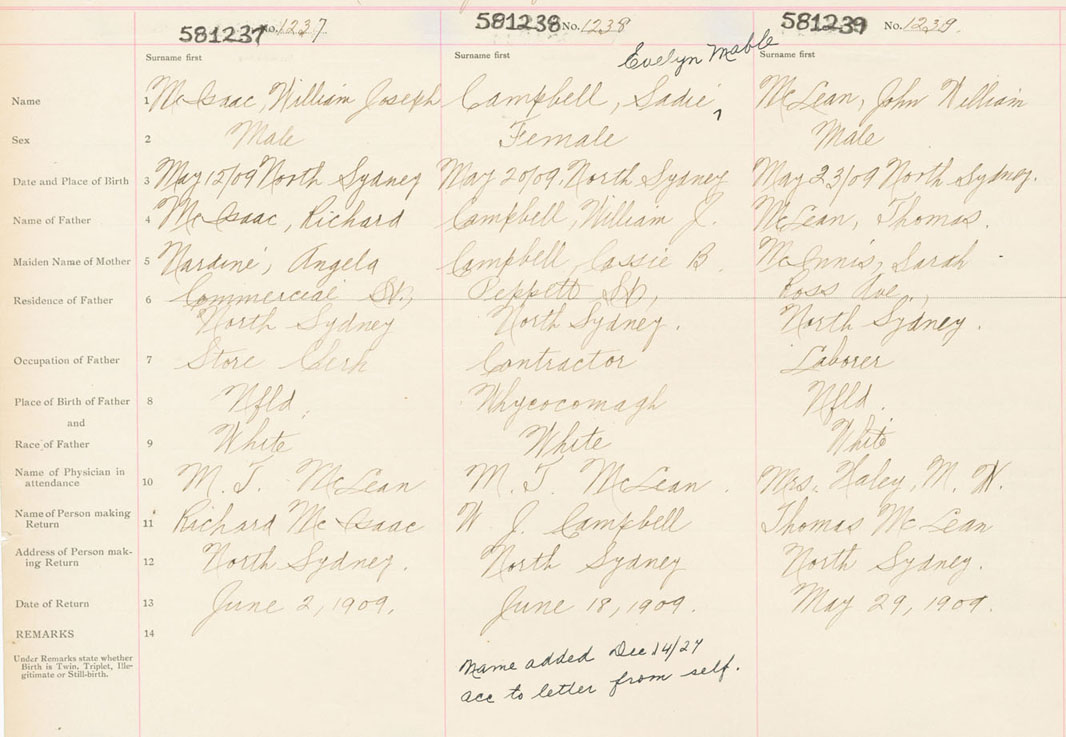 581237 No. 1237 581238 No. 1238 581239 No. 1239.
Surname first Surname first Evelyn Mable Surname first
Name 1 McIsaac, William Joseph Campbell, Sadie, McLean, John William
Sex 2 Male Female Male
Date and Place of Birth 3 May 12/09 North Sydney May 20/09, North Sydney May 23/09 North Sydney.
Name of Father 4 McIsaac, Richard Campbell, William J. McLean, Thomas.
Maiden Name of Mother 5 Nardini, Angela Campbell, Cassie B. McInnis, Sarah
Residence of Father 6 Commercial St., Peppett St., Ross Ave.,
North Sydney North Sydney. North Sydney.
Occupation of Father 7 Store Clerk Contractor Laborer
Place of Birth of Father 8 Nfld. Whycocomagh Nfld.
and
Race of Father 9 White White White
Name of Physician in
attendance 10 M. T. McLean M. T. McLean. Mrs. Haley, M. W.
Name of Person making
Return 11 Richard McIsaac W. J. Campbell Thomas McLean
Address of Person mak-
ing Return 12 North Sydney. North Sydney North Sydney.
Date of Return 13 June 2, 1909. June 18, 1909. May 29, 1909.
REMARKS 14
Under Remarks state whether
Birth is Twin, Triplet, Ille-
gitimate or Still-birth.
Name added Dec 14/27
acc to letter from self.